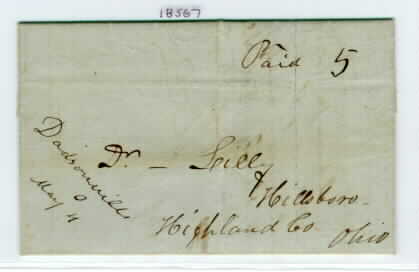 18567
Paid 5
Dodsonville
O
May 4
Dr. — Lilly
Hillsboro.
Highland Co.
Ohio